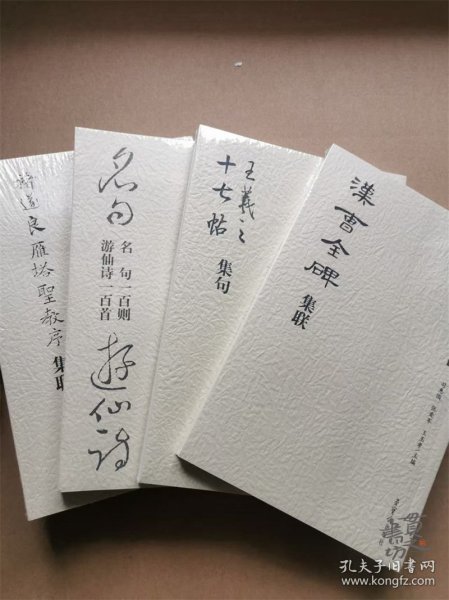 褚遂良雁塔聖教序
集联
名句
名句一百则
游仙诗一百首
遊仙詩
王羲之
十七帖
集句
漢曹全碑
集联
孔夫子旧书网
www.kongfz.com